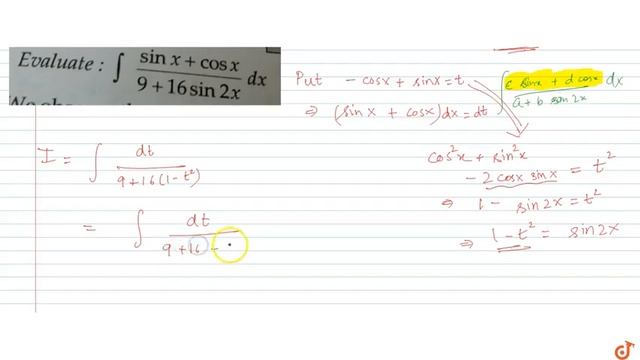 Evaluate : ∫ (sin x + cos x)/(9 + 16 sin 2x) dx
Put - cosx + sinx = t
⇒ (sinx + cosx) dx = dt
∫ (c sinx + d cosx)/(a + b sin 2x) dx
I = ∫ dt/(9 + 16(1 - t²))
= ∫ dt/(9 + 16 -
cos²x + sin²x
- 2 cosx sinx = t²
⇒ 1 - sin2x = t²
⇒ 1 - t² = sin2x